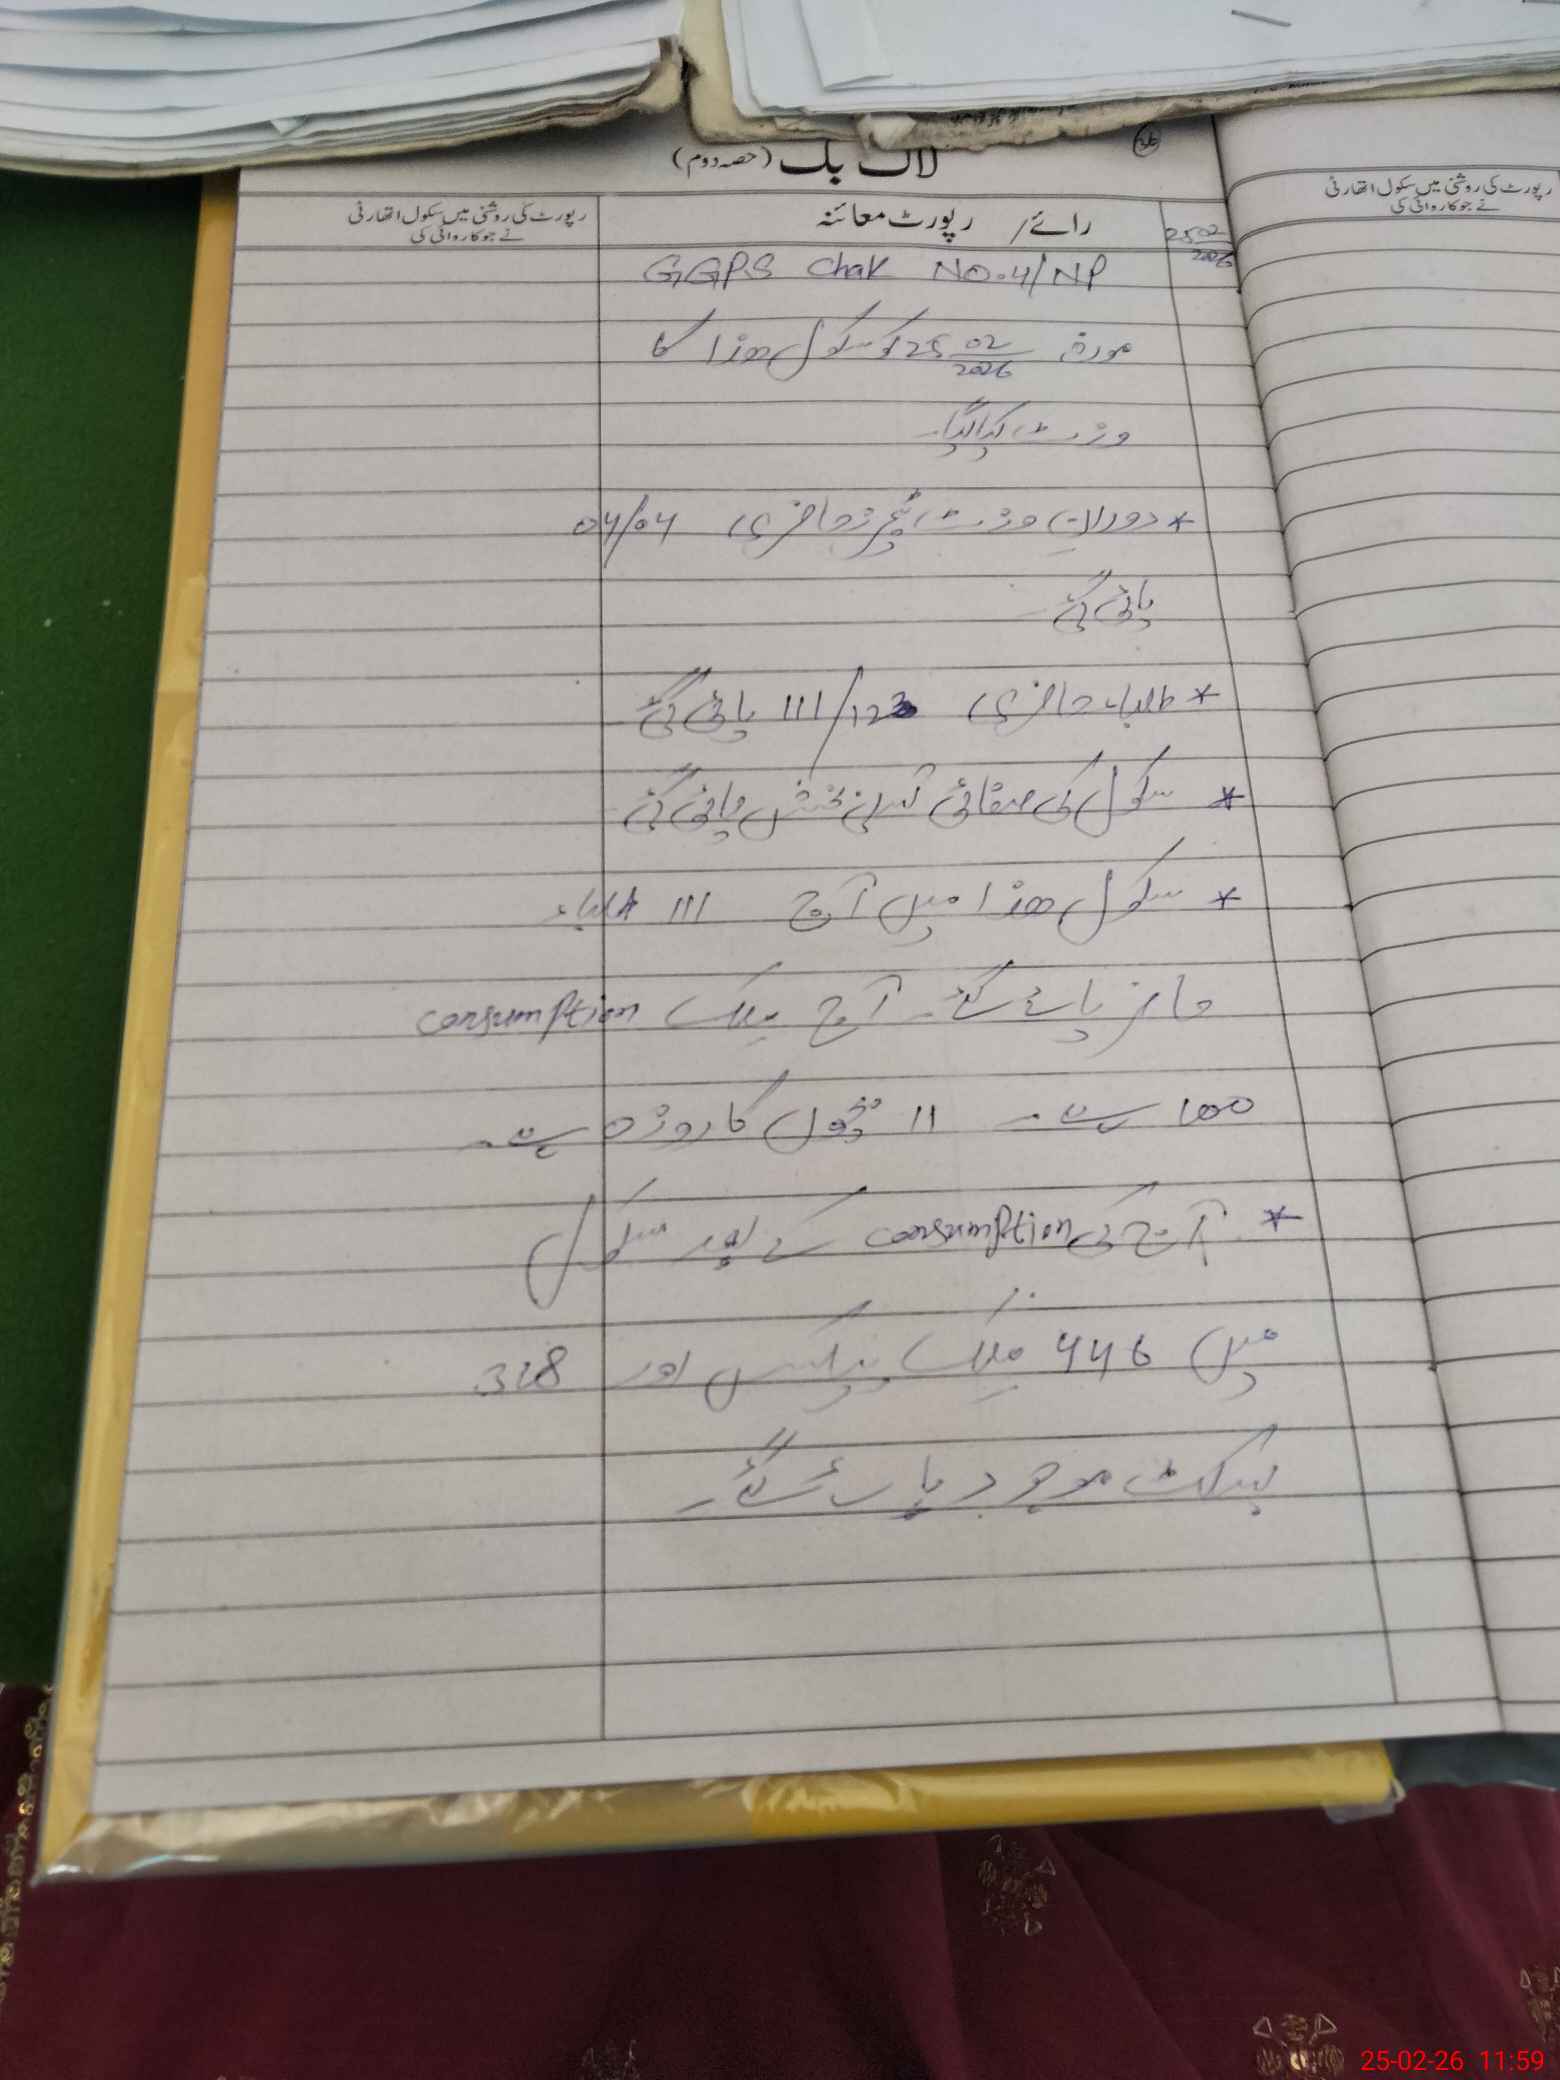 لاگ بک (حصہ دوم)
رائے / رپورٹ معائنہ
رپورٹ کی روشنی میں سکول اتھارٹی
نے جو کاروائی کی
رپورٹ کی روشنی میں سکول اتھارٹی
نے جو کاروائی کی
25 02
2026
GGPS Chak NO.4/NP
مورخہ 25 02/2026 کو سکول ھذا کا
وزٹ کیا گیا۔
* دوران وزٹ ٹیچرز حاضری 04/04
پائی گئی
* طلباء حاضری 111/123 پائی گئی
* سکول کی صفائی تسلی بخش پائی گئی
* سکول ھذا میں آج 111 طلباء
حاضر پائے گئے۔ آج ملک consumption
100 ہے۔ 11 بچوں کا روزہ ہے۔
* آج کی consumption کے بعد سکول
میں 446 ملک پیکس اور 328
پیکٹ موجود پائے گئے۔
25-02-26 11:59